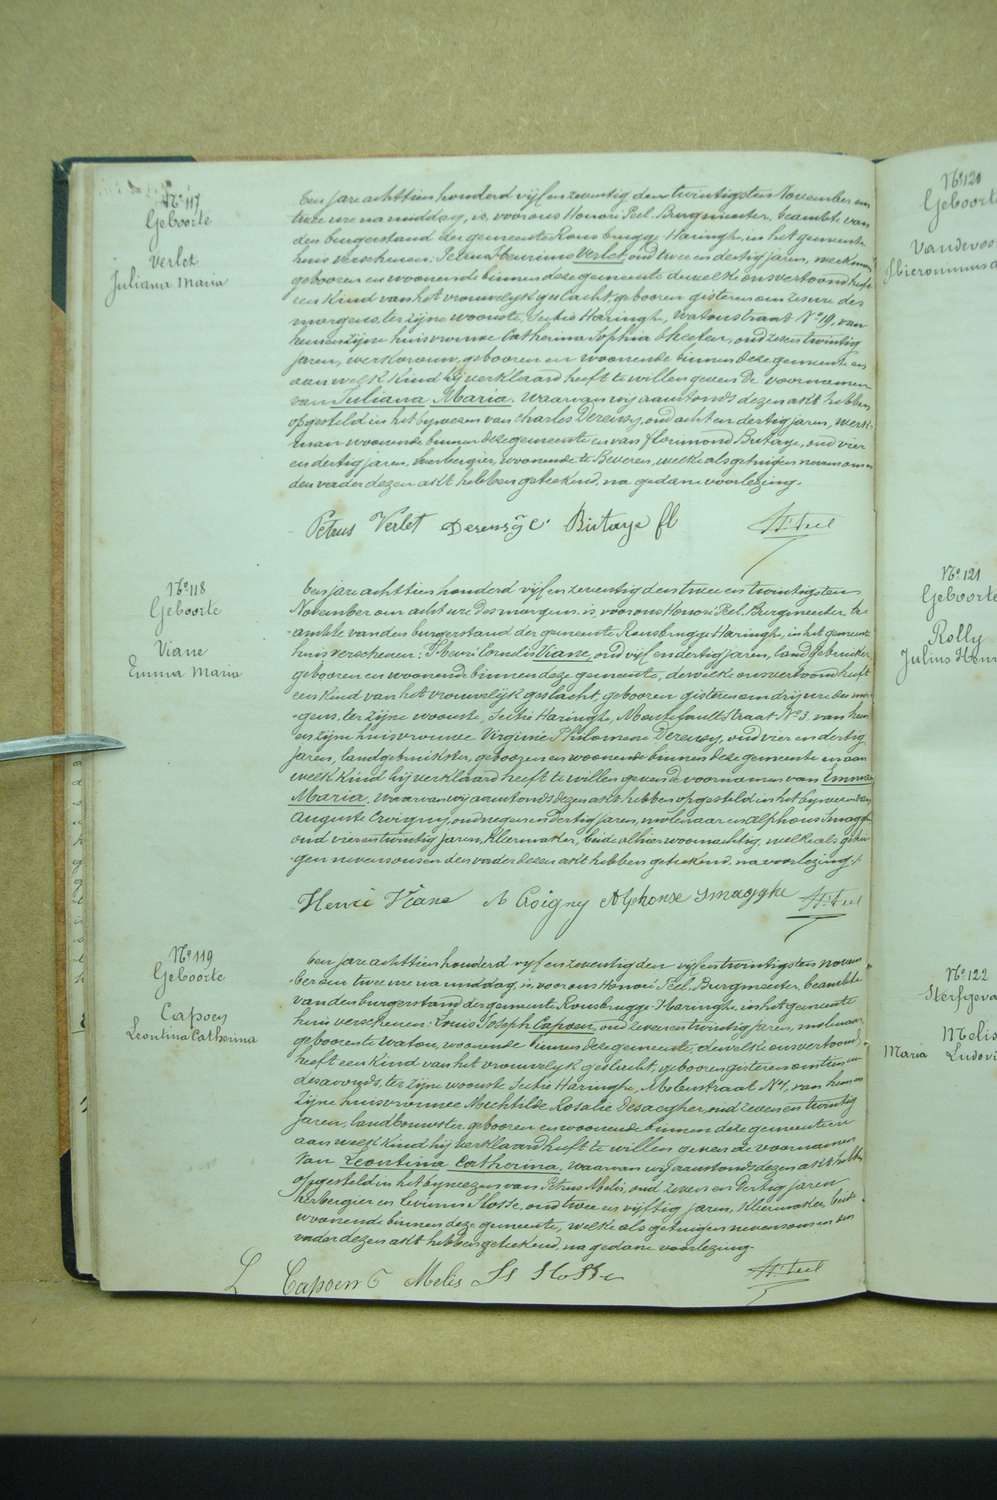 N° 117
Geboorte
Verlet
Juliana Maria
Een jare achttien honderd vijf en zeventig den twintigsten November om
twee ure na middag, is, voor ons Honoré Peel, Burgmeester, beambte van
den burgerstand der gemeente Rousbrugge Haringhe, in het gemeente
huis verschenen: Petrus Verlet, oud twee en dertig jaren, werkman
geboren en woonende binnen deze gemeente dewelke ons vertoond heeft
een kind van het vrouwelijk geslacht, geboren gisteren om zes ure des
morgens, ter zijne woonste, Sectie Haringhe, Watoustraat N° 19, van
hem en zijne huisvrouwe Catherina Sophia, oud zeven twintig
jaren, werkvrouw, geboren en woonende binnen deze gemeente en
aan welk kind hij verklaard heeft te willen geven de voornamen
van Juliana Maria. Waarvan wij aanstonds dezen akt hebben
opgesteld in het bijwezen van Charles Dereusy, oud acht en dertig jaren, werk-
man woonende binnen deze gemeente en van Florimond Butaye, oud vier
en dertig jaren, herbergier, woonende te Beveren, welke als getuigen nevens ons en
den vader dezen akt hebben geteekend, na gedane voorlezing.
Petrus Verlet C. Butaye fl H. Peel
N° 118
Geboorte
Viane
Emma Maria
Een jare achttien honderd vijf en zeventig den twee en twintigsten
November om acht ure des morgens, is, voor ons Honoré Peel, Burgmeester, be-
-ambte van den burgerstand der gemeente Rousbrugge Haringhe, in het gemeente
huis verschenen: Henri Cornelis Viane, oud vijf en dertig jaren, landgebruiker,
geboren en woonende binnen deze gemeente, dewelke ons vertoond heeft
een kind van het vrouwelijk geslacht, geboren gisteren om drij ure des mor-
-gens, ter zijne woonste, Sectie Haringhe, straat N° 3, van hem
en zijne huisvrouwe Virginie Philomene Dereusy, oud vier en dertig
jaren, landgebruikster, geboren en woonende binnen deze gemeente en aan
welk kind hij verklaard heeft te willen geven de voornamen van Emma
Maria. Waarvan wij aanstonds dezen akt hebben opgesteld in het bijwezen van
Auguste Croigny, oud negen en dertig jaren, molenaar en Alphons Smagghe
oud vier en twintig jaren, kleermaker, beide alhier woonachtig, welke als getui-
-gen nevens ons en den vader dezen akt hebben geteekend, na voorlezing.
Henri Viane A Croigny Alphonse Smagghe H. Peel
N° 119
Geboorte
Capoen
Leontina Catherina
Een jare achttien honderd vijf en zeventig den vijf en twintigsten novem-
-ber om twee ure na middag, is voor ons Honoré Peel, Burgmeester, beambte
van den burgerstand der gemeente Rousbrugge-Haringhe, in het gemeente
huis verschenen: Louis Joseph Capoen, oud zeven en twintig jaren, molenaar
geboren te Watou, woonende binnen deze gemeente, dewelke ons vertoond
heeft een kind van het vrouwelijk geslacht, geboren gisteren om zeven ure
des avonds, ter zijne woonste Sectie Haringhe, Molenstraat N° 1, van hem en
zijne huisvrouwe Mechtilde Rosalie Desaegher, oud zeven en twintig
jaren, landbouwster, geboren en woonende binnen deze gemeente en
aan welk kind hij verklaard heeft te willen geven de voornamen
van Leontina Catherina, waarvan wij aanstonds dezen akt hebben
opgesteld in het bijwezen van Petrus Melis, oud zeven en dertig jaren
herbergier en Livinus Slosse, oud twee en vijftig jaren, kleermaker, beide
woonende binnen deze gemeente, welke als getuigen nevens ons en den
vader dezen akt hebben geteekend, na gedane voorlezing.
L Capoen Melis Slosse H. Peel
N° 120
Geboorte
Vandevoo
Hieronimus
N° 121
Geboorte
Rolly
Julius Henri
N° 122
Sterfgeva
Melis
Maria Ludovi